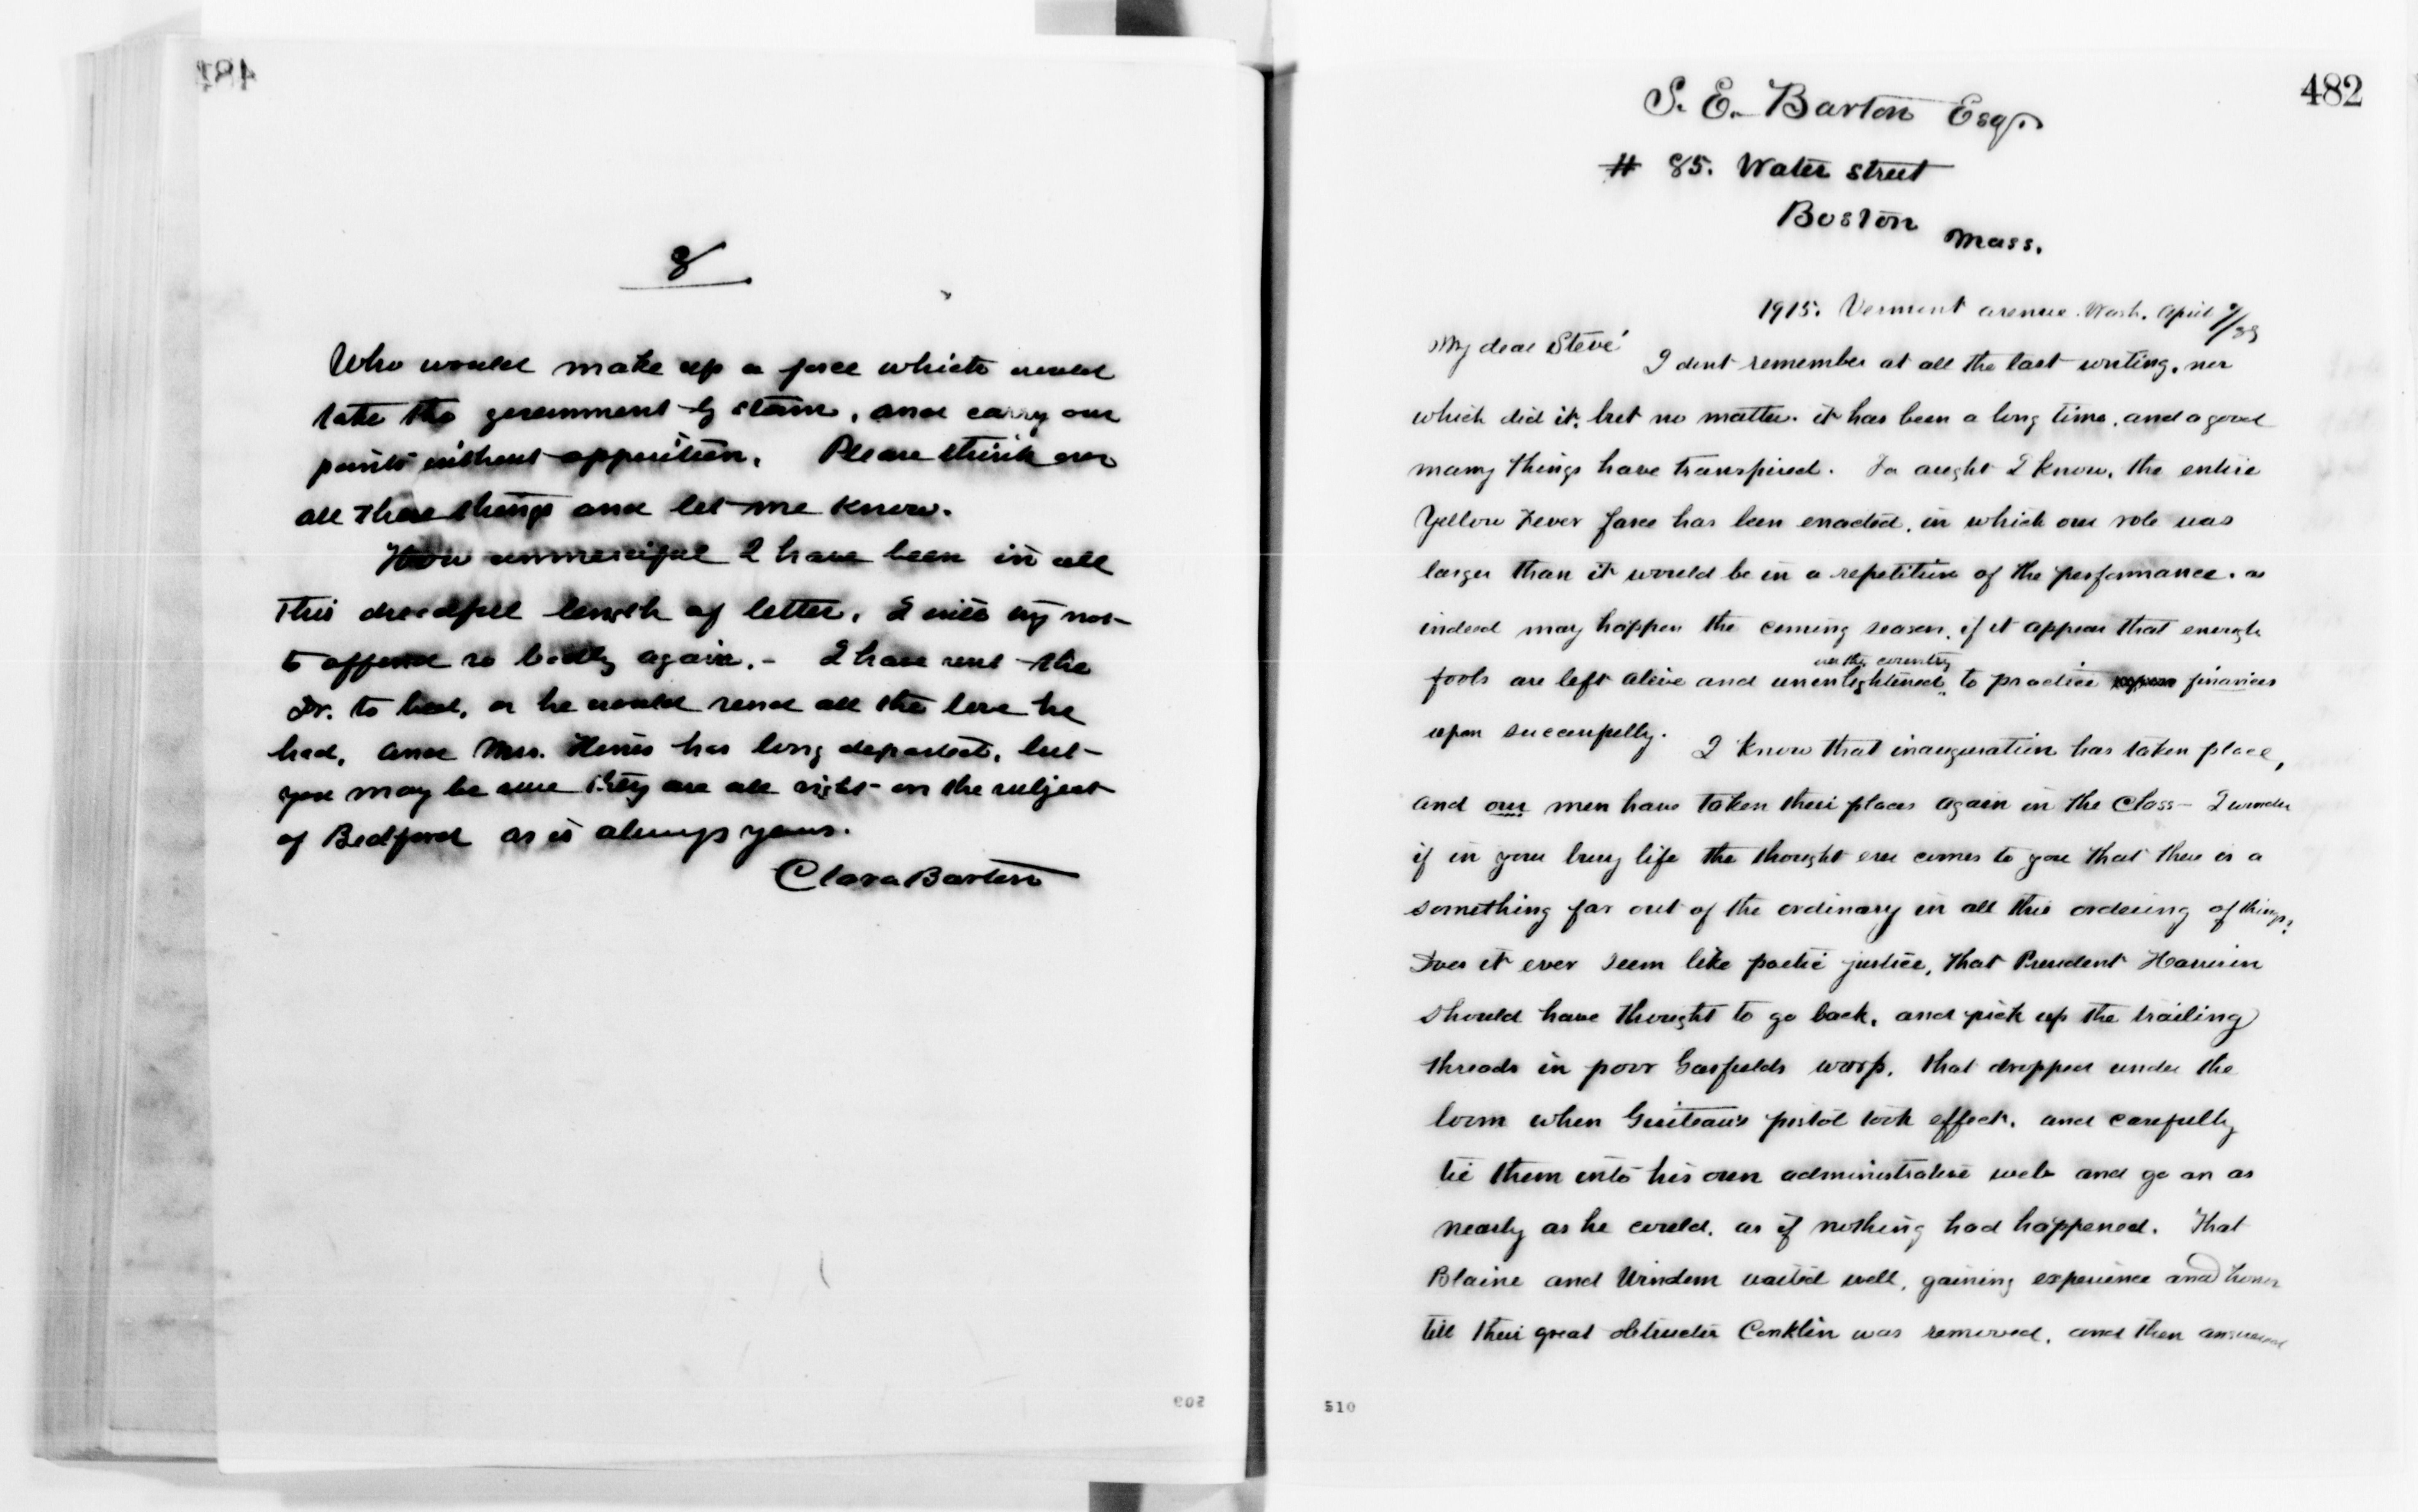 481
8
Who would make up a force which would
take the government by storm, and carry our
points without opposition. Please think over
all these things and let me know.
How unmerciful I have been in all
this dreadful length of letter, I will try not
to offend so badly again. - I have sent the
Dr. to bed, or he would send all the love he
had, and Mrs. Hines has long departed, but
you may be sure they are all right on the subject
of Bedford as is always yours.
Clara Barton
509
482
S. E. Barton Esq.
# 85. Water street
Boston
Mass.
1915. Vermont avenue. Wash. April /89
My dear Steve'
I dont remember at all the last writing, nor
which did it, but no matter. it has been a long time, and a good
many things have transpired. For aught I know, the entire
Yellow Fever farce has been enacted, in which our role was
larger than it would be in a repetition of the performance. as
indeed may happen the coming season, if it appear that enough
over the country
fools are left alive and unenlightened, to practice finances
upon successfully.
I know that inauguration has taken place,
and our men have taken their places again in the class - I wonder
if in your busy life the thought ever comes to you that there is a
something far out of the ordinary in all this ordering of things?
Does it ever seem like poetic justice, that President Harrison
should have thought to go back, and pick up the trailing
threads in poor Garfields warp, that dropped under the
loom when Guiteau's pistol took effect, and carefully
tie them into his own administrative web and go on as
nearly as he could, as if nothing had happened. That
Blaine and Windom waited well, gaining experience and honor
till their great obstructer Conklin was removed, and then answered
510